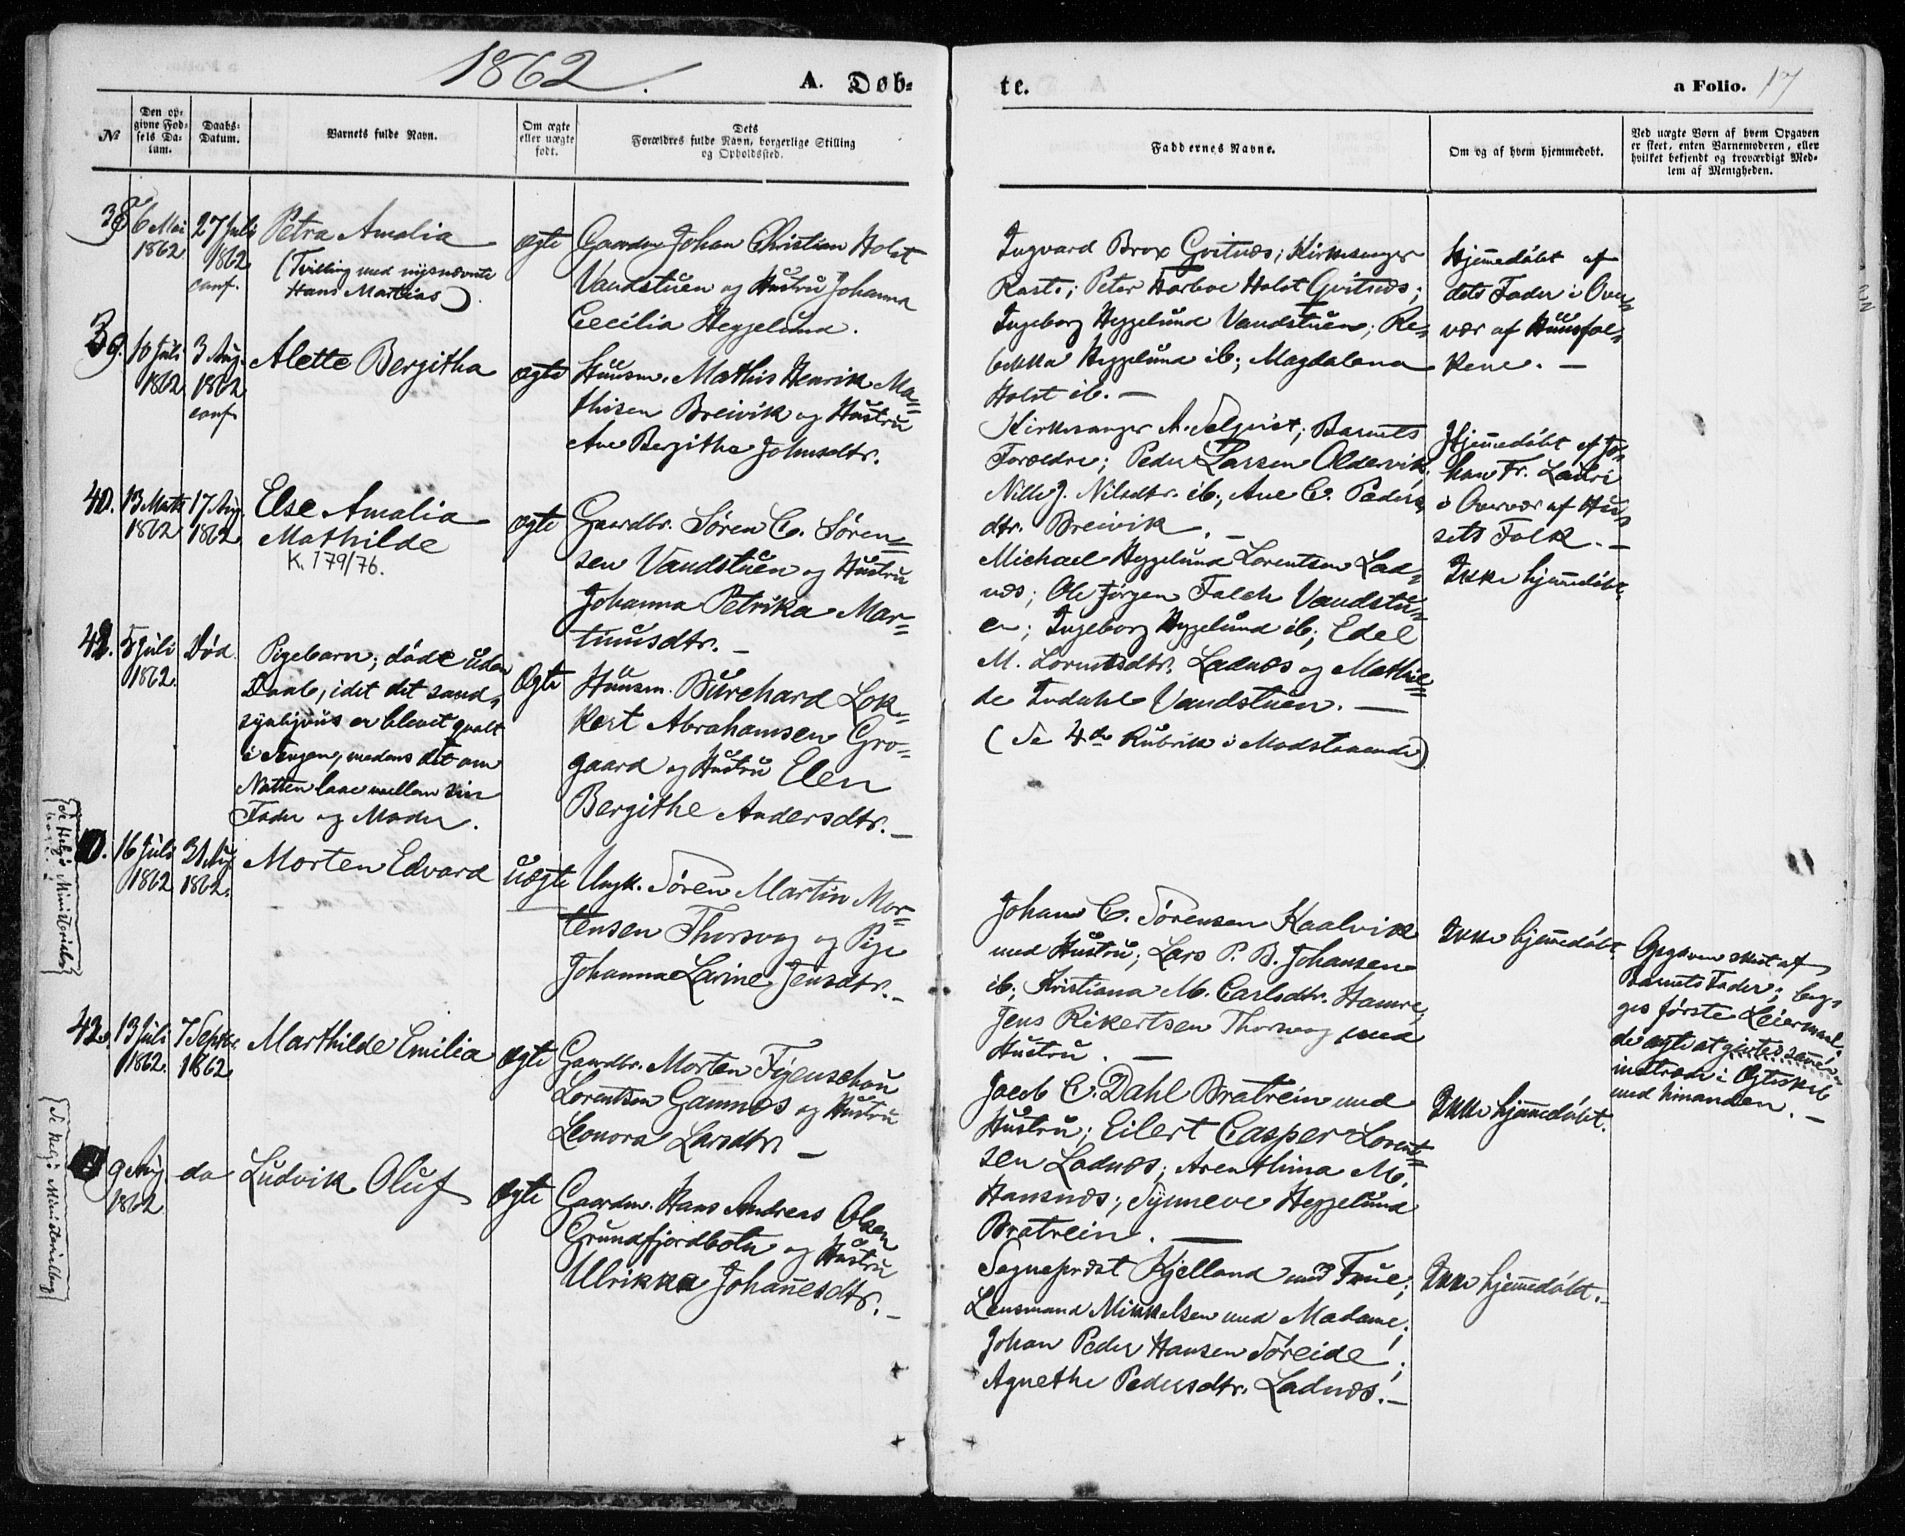 1862.
A. Døb-
te.
a Folio. 17
№
Den op-
givne Fød-
sels Da-
tum.
Daabs-
Datum.
Barnets fulde Navn.
Om ægte
eller uægte
født.
Dets
Forældres fulde Navn, borgerlige Stilling
og Opholdssted.
Faddernes Navne.
Om og af hvem hjemmedøbt.
Ved uægte Børn af hvem Opgaven
er skeet, enten Barnemoderen, eller
hvilket bekjendt og troværdigt Med-
lem af Menigheden.
38
6 Mai
1862
27 Juli
1862
conf.
Petra Amalia
(Tvilling med nysnævnte
Hans Mathias)
ægte
Gaardm. Johan Christian Holst
Vandstuen og Hustru Johanna
Cecilia Heggelund.
Ingvard Brox Gvitnæs; Kirkesanger
Rast; Peter Holst Gvitnæs;
Ingeborg Heggelund Vandstuen; Re-
bekka Heggelund ib; Magdalena
Holst ib. —
Hjemmedøbt af
dets Fader i Over-
vær af Huusfol-
kene. —
39.
10 Juli
1862
3 Aug.
1862
conf.
Alette Bergitha
ægte
Huusm. Mathis Henrik Ma-
thisen Breivik og Hustru
Ane Bergithe Johnsdtr.
Kirkesanger A. Selqvist; Barnets
Forældre; Peder Larsen Oldervik;
Nille J. Nilsdtr. ib; Ane C. Peders-
dtr. Breivik. —
Hjemmedøbt af Jo-
han Fr. Lauri
i Overvær af Hu-
sets Folk. —
40.
13 Marts
1862
17 Aug.
1862
Else Amalia
Mathilde
K. 179/76.
ægte
Gaardbr. Søren C. Søren-
sen Vandstuen og Hustru
Johanna Petrika Mar-
tinusdtr. —
Michael Heggelund Lorentsen Lad-
næs; Ole Jørgen Falch Vandstu-
en; Ingeborg Heggelund ib; Edel
M. Lorentsdtr. Ladnæs og Mathil-
de Indahl Vandstuen. —
Ikke hjemmedøbt.
5 Juli
1862
Død.
Pigebarn; døde uden
Daab, idet det sand-
synligviis er blevet qvalt
i Sengen, medens det om
Natten laae mellem sin
Fader og Moder.
Ægte
Huusm. Burchard Lok-
kert Abrahamsen Gro-
gaard og Hustru Elen
Bergithe Andersdtr. —
(Se 4de Rubrik i Modstaaende)
Se Helgø Ministerialbog
16 Juli
1862
31 Aug.
1862.
Morten Edvard
uægte
Ungk. Søren Martin Mor-
tensen Thorsvag og Pige
Johanna Lavine Jensdtr. —
Johan C. Sørensen Kaalvik
med Hustru; Lars P. B. Johansen
ib; Kristiana M. Carlsdtr. Hamre;
Jens Rikertsen Thorsvag med
Hustru. —
Ikke hjemmedøbt.
Opgaven skeet af
Barnets Fader; beg-
ges første Leiermaal.
med hinanden. —
42.
13 Juli
1862.
7 Septbr.
1862
Marthilde Emilia
ægte
Gaardbr. Morten Figenschou
Lorentsen Gamnæs og Hustru
Leonora Larsdtr. —
Jacob C. Dahl Bratrein med
Hustru; Eilert Casper Lorent-
sen Ladnæs; Arenthina M.
Hansnæs; Synneve Heggelund
Bratrein. —
Ikke hjemmedøbt.
Se Helgø Ministerialbog
9 Aug.
1862
do
Ludvik Oluf
ægte
Gaardm. Hans Andreas Olsen
Grundfjordbotn og Hustru
Ulrikka Johannesdtr. —
Sogneprest Kjelland med Frue;
Lensmand Mikkelsen med Madame;
Johan Peder Hansen Søreide;
Agnethe Pedersdtr. Ladnæs. —
Ikke hjemmedøbt. —